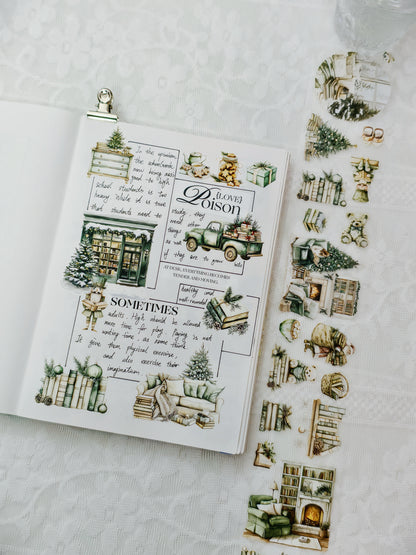 In the opinion
the schoolwork
now being assi
gned to high
school students is too
heavy While it is true
that students need to
{LOVE}
Poison
study they
need other
things as well
if they are to grow into
AT DESK, EVERYTHING BECOMES
TENDER AND MOVING.
healthy and
well-rounded
SOMETIMES
adults High should be allowed
more time for play Playing is not
wasting time as some think
It gives them physical exercise,
and also exercise their
imagination